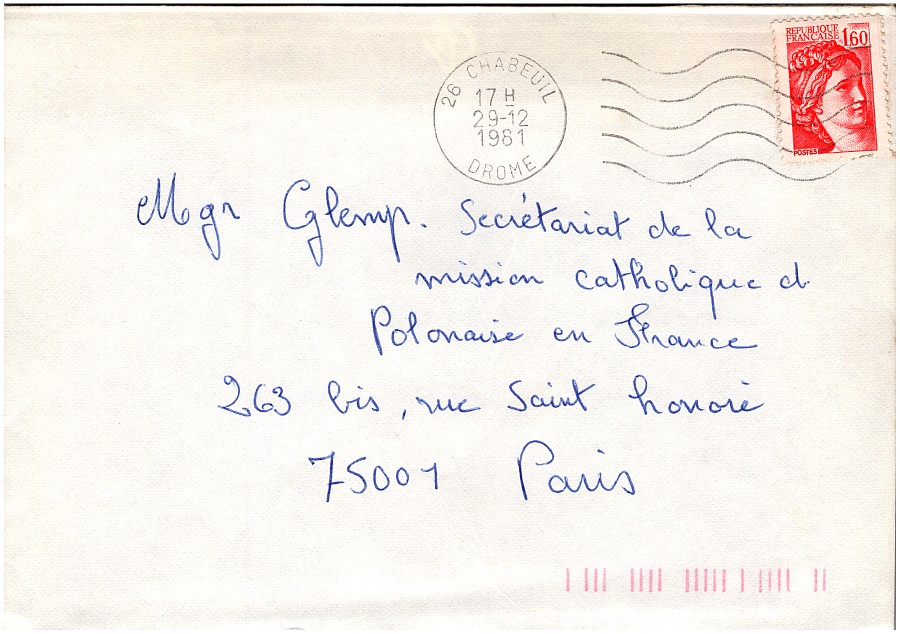 RÉPUBLIQUE
FRANÇAISE 1,60
POSTES
26 CHABEUIL
17 H
29-12
1981
DROME
Mgr Glemp. Secrétariat de la
mission catholique d
Polonaise en France
263 bis, rue Saint honoré
75001 Paris